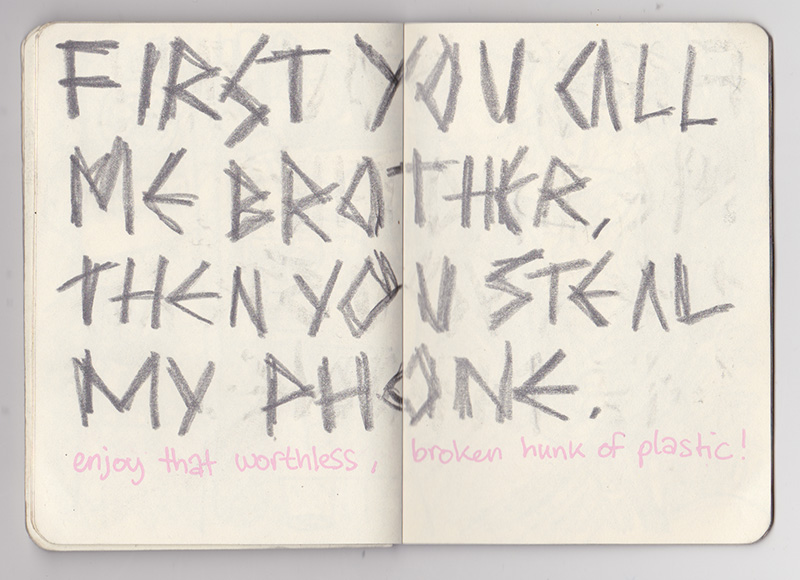 FIRST YOU CALL
ME BROTHER,
THEN YOU STEAL
MY PHONE.
enjoy that worthless, broken hunk of plastic!